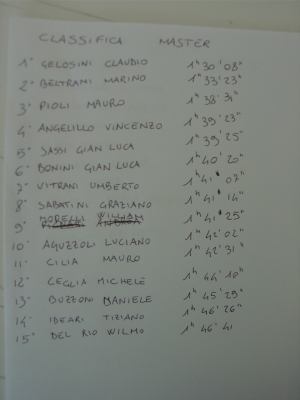 CLASSIFICA MASTER
1° GELOSINI CLAUDIO 1h 30' 08"
2° BELTRAMI MARINO 1h 33' 23"
3° PIOLI MAURO 1h 38' 31"
4° ANGELILLO VINCENZO 1h 39' 23"
5° SASSI GIAN LUCA 1h 39' 25"
6° BONINI GIAN LUCA 1h 40' 20"
7° VITRANI UMBERTO 1h 41' 07"
8° SABATINI GRAZIANO 1h 41' 14"
MORELLI WILLIAM
9° ANDREA 1h 41' 25"
10° AGUZZOLI LUCIANO 1h 42' 02"
11° CILIA MAURO 1h 42' 31"
12° CEGLIA MICHELE 1h 44' 10"
13° BUZZONI DANIELE 1h 45' 29"
14° IDEARI TIZIANO 1h 46' 26"
15° DEL RIO WILMO 1h 46' 41